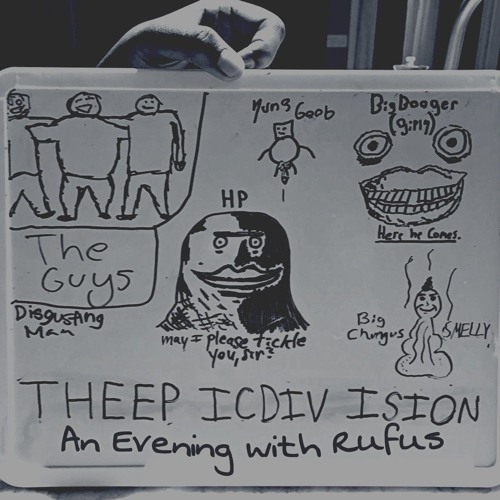 Yung Goob
Big Booger
(girly)
Here he Comes.
The
Guys
Disgusting
Man
HP
may I please tickle
you, sir?
Big
Chungus
SMELLY
THEEP ICDIV ISION
An Evening with Rufus